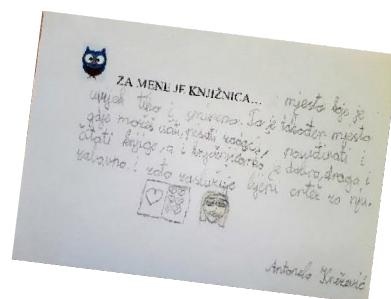 ZA MENE JE KNJIŽNICA... mjesto koje je
uvijek tiho i smireno. To je također mjesto
gdje možeš zadaću, i
čitati knjige, a i knjižničarka je dobra, draga i
zabavna i zato zaslužuje lijepi crtež za nju.
Antonela Knežević